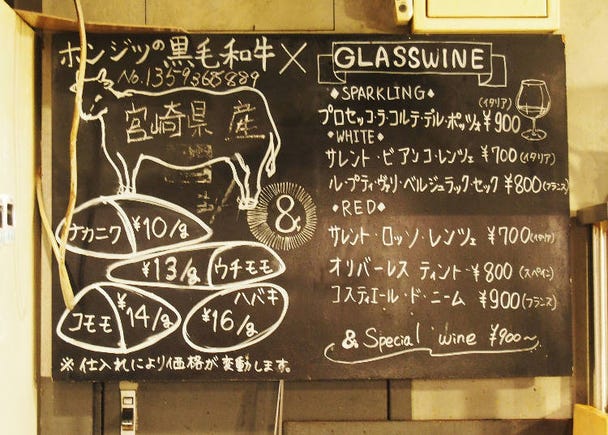 ホンジツの黒毛和牛×
No.1359368889
宮崎県産
&
ナカニク ¥10/g
¥13/g ウチモモ
コモモ ¥14/g
ハバキ
¥16/g
※仕入れにより価格が変動します。
GLASSWINE
◆SPARKLING◆
(イタリア)
プロセッコ・ラ・コルテ・デル・ポッツォ ¥900
◆WHITE◆
サレント・ビアンコ・レンツェ ¥700(イタリア)
ル・プティ・ヴァリ・ベルジュラック・セック ¥800(フランス)
◆RED◆
サレント・ロッソ・レンツェ ¥700(イタリア)
オリバーレス ティント・¥800(スペイン)
コスティエール・ド・ニーム ¥900(フランス)
& Special wine ¥900~